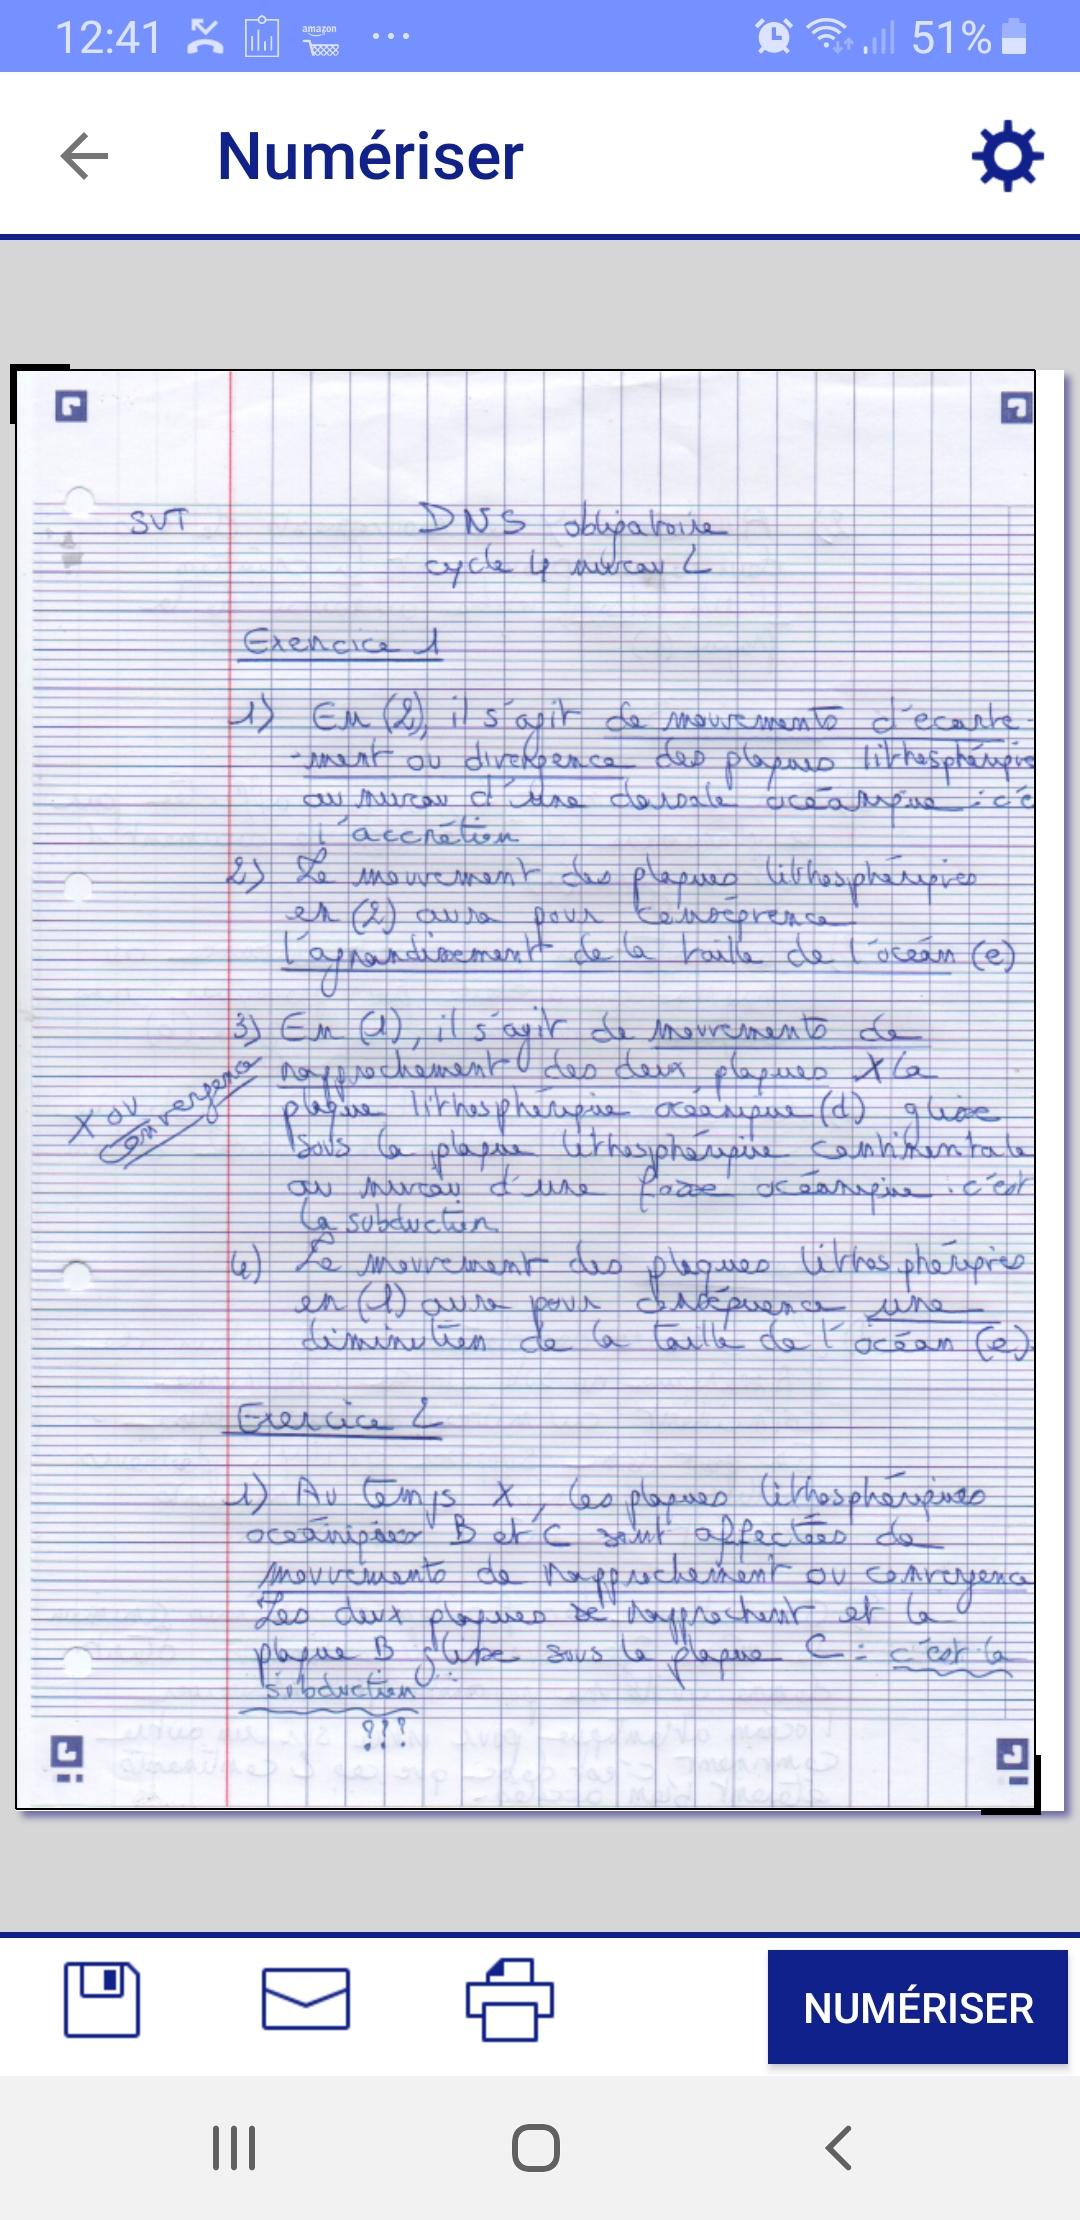 12:41
amazon
51%
Numériser
SVT
DNS obligatoire
cycle 4 niveau 2
Exercice 1
1) En (2), il s'agit de mouvements d'écarte-
-ment ou divergence des plaques lithosphériq
au niveau d'une dorsale océanique : c'e
l'accrétion
2) Le mouvement des plaques lithosphériques
en (2) aura pour conséquence
l'agrandissement de la taille de l'océan (e)
3) En (1), il s'agit de mouvements de
rapprochement des deux plaques X la
X ou convergence
plaque lithosphérique océanique (d) glisse
sous la plaque lithosphérique continentale
au niveau d'une fosse océanique : c'est
la subduction
4) Le mouvement des plaques lithosphériques
en (1) aura pour conséquence une
diminution de la taille de l'océan (e)
Exercice 2
1) Au temps X, les plaques lithosphériques
océaniques B et C sont affectées de
mouvements de rapprochement ou convergence
Les deux plaques se rapprochent et la
plaque B glisse sous la plaque C : c'est la
subduction
???
NUMÉRISER